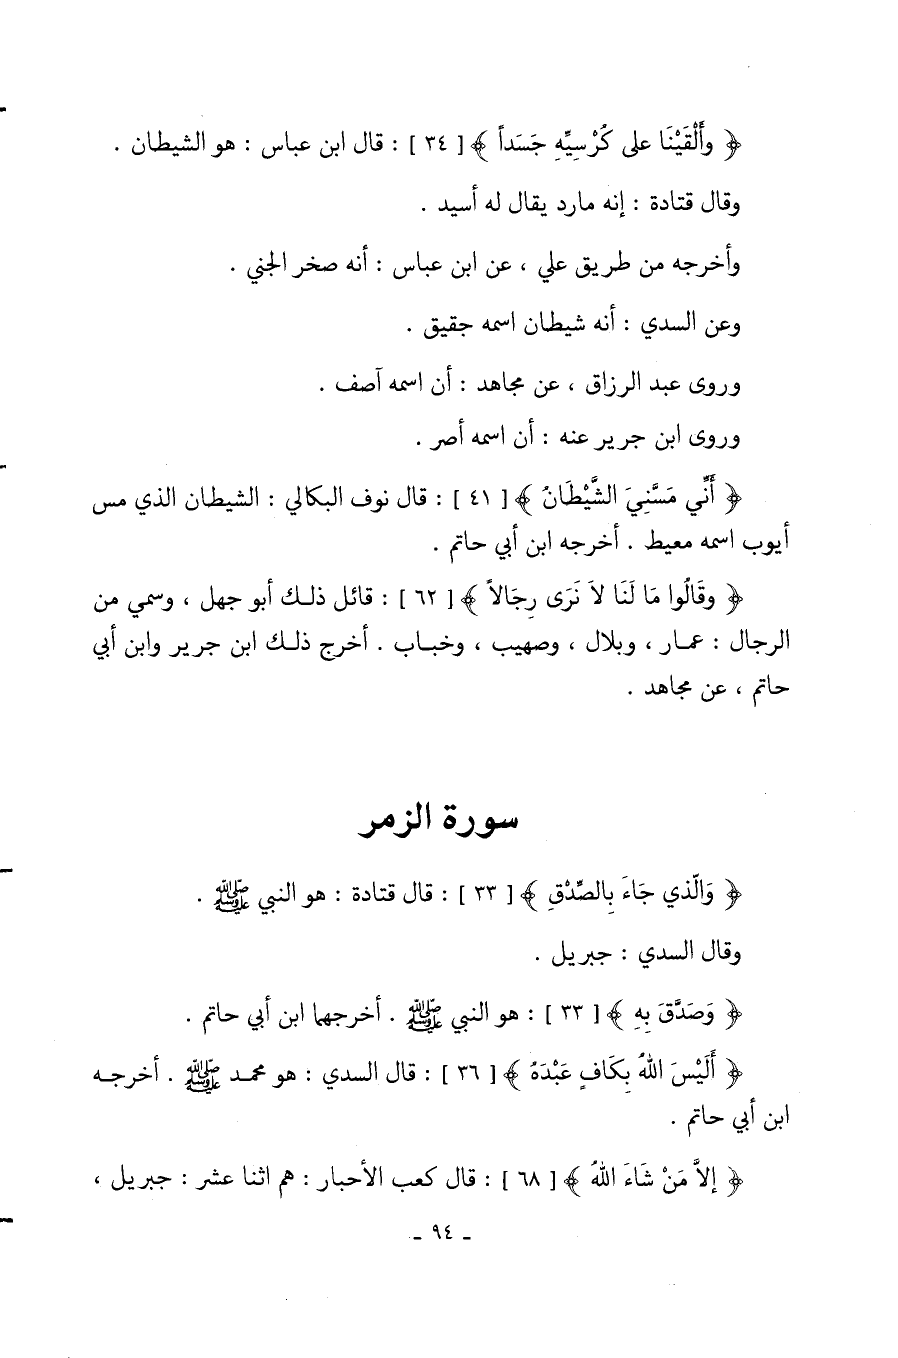 ﴿ وأَلْقَيْنَا على كُرْسِيِّهِ جَسَداً ﴾ [ ٣٤ ] : قال ابن عباس : هو الشيطان .
وقال قتادة : إنه مارد يقال له أسيد .
وأخرجه من طريق علي ، عن ابن عباس : أنه صخر الجني .
وعن السدي : أنه شيطان اسمه جقيق .
وروى عبد الرزاق ، عن مجاهد : أن اسمه آصف .
وروى ابن جرير عنه : أن اسمه أصر .
﴿ أَنِّي مَسَّنِيَ الشَّيْطَانُ ﴾ [ ٤١ ] : قال نوف البكالي : الشيطان الذي مس
أيوب اسمه معيط . أخرجه ابن أبي حاتم .
﴿ وقَالُوا مَا لَنَا لاَ نَرَى رِجَالاً ﴾ [ ٦٢ ] : قائل ذلك أبو جهل ، وسمي من
الرجال : عمار ، وبلال ، وصهيب ، وخباب . أخرج ذلك ابن جرير وابن أبي
حاتم ، عن مجاهد .
سورة الزمر
﴿ وَالَّذي جَاءَ بِالصِّدْقِ ﴾ [ ٣٣ ] : قال قتادة : هو النبي ﷺ .
وقال السدي : جبريل .
﴿ وَصَدَّقَ بِهِ ﴾ [ ٣٣ ] : هو النبي ﷺ . أخرجها ابن أبي حاتم .
﴿ أَلَيْسَ اللهُ بِكَافٍ عَبْدَهُ ﴾ [ ٣٦ ] : قال السدي : هو محمد ﷺ . أخرجه
ابن أبي حاتم .
﴿ إلاَّ مَنْ شَاءَ اللهُ ﴾ [ ٦٨ ] : قال كعب الأحبار : هم اثنا عشر : جبريل ،
ـ ٩٤ ـ